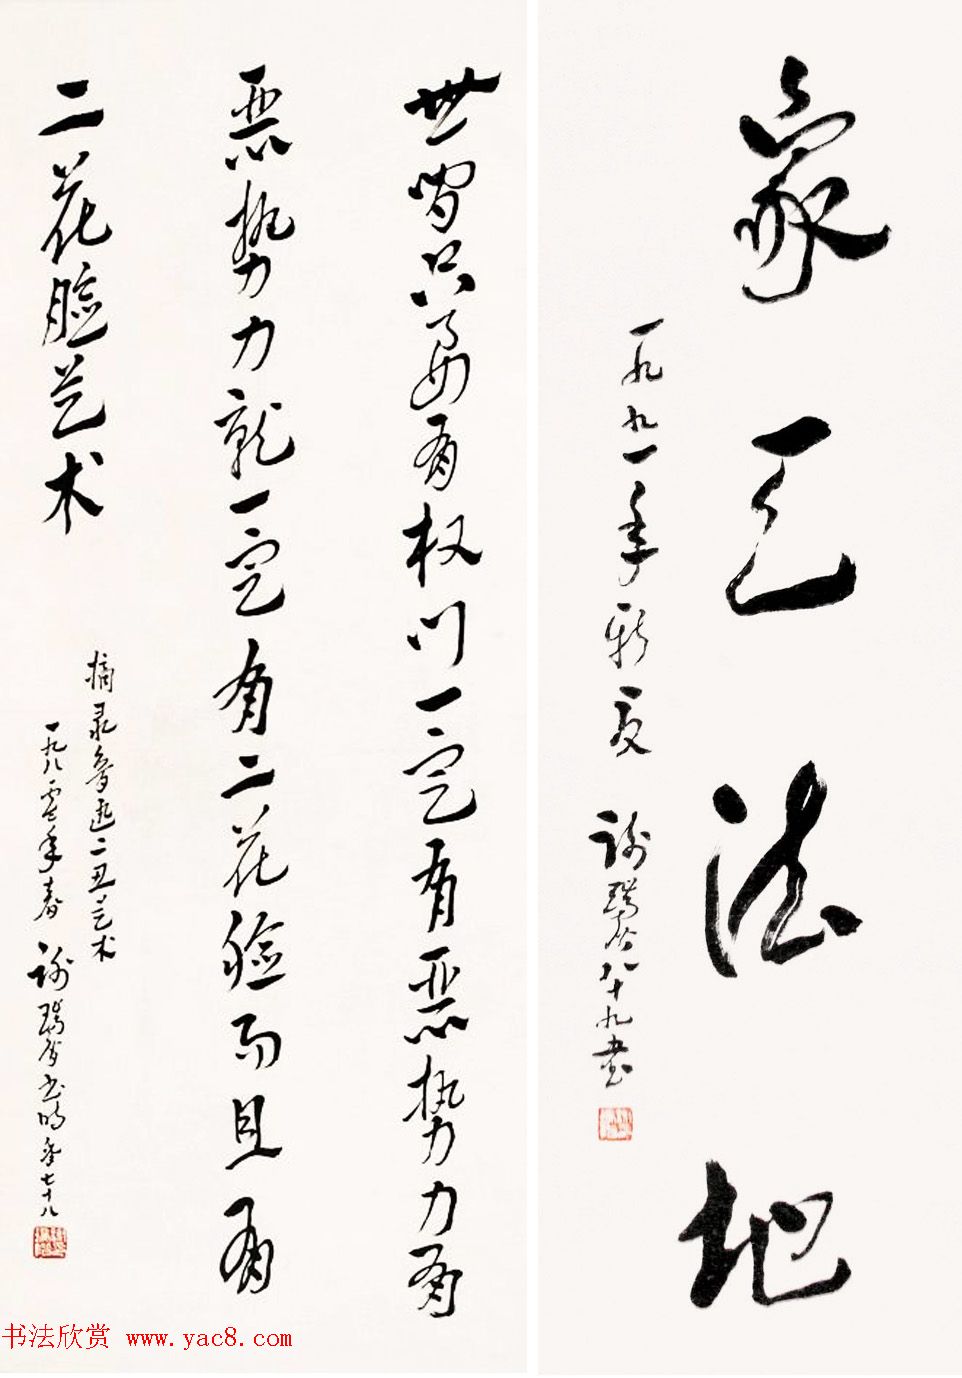 象天法地
一九九一年新夏 谢瑞阶八十九书
世间只要有权门一定有恶势力有
恶势力就一定有二花脸而且有
二花脸艺术
摘录鲁迅二丑艺术
一九八零年春 谢瑞阶书时年七十八
书法欣赏 www.yac8.com